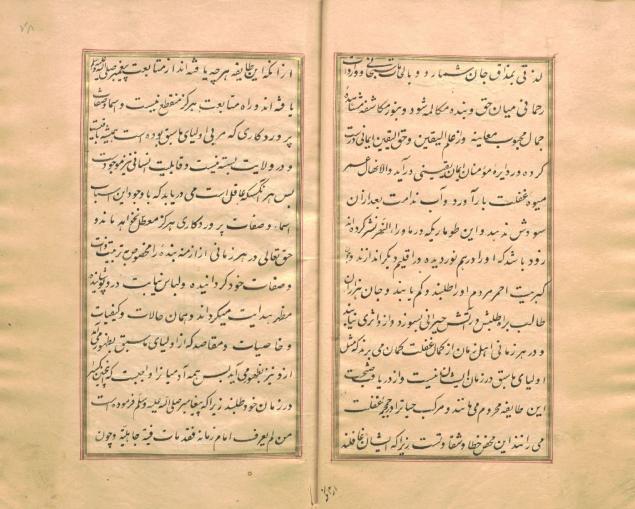 لذتی بمذاق جان شمارد و بالهامات
رحمانی میان حق و بنده مکالمه شود و بنور مکاشفه مشاهدهٔ
جمال محبوب معاینه و از علم الیقین و حق الیقین ایمانی درست
کرده در دایرهٔ مؤمنان ایمان یقینی درآید و الا نهال عمر
میوه غفلت بار آورد و آب ندامت بعد از آن
سودش ندهد و این طومار که در ماوراء النهر نشر کرده‌اند
زود باشد که او را درهم نوردیده در اقلیم دیگر اندازند و چون
کبریت احمر مردم او را طلبند و کم یابند و جان هزاران
طالب را طلبش در آتش حیرانی بسوزد و از او اثری نیابند
و در هر زمانی اهل زمان از کمال غفلت گمان می برند که مثل
اولیای ماسبق در زمان ایشان نیست و از دریافت صحبت
این طایفه محروم می مانند و مرکب حیات را در غفلت
می رانند این محض خطا و شقاوتست زیرا که ایشان غافلند
از آنکه این طایفه هر چه یافته اند از متابعت پیغمبر صلی الله علیه وسلم
یافته اند و راه متابعت هرگز منقطع نیست و اسما و صفات
پروردگاری که مربی اولیای ماسبق بوده است همیشه باقیست
و در ولایت بسته نیست و قابلیت انسانی هرگز موجود است
پس هر آنکس که عاقل است می دریابد که با وجود این اسباب
اسماء و صفات پروردگاری هرگز معطل نخواهد ماند و
حق تعالی در هر زمانی از ازمنه بنده را مخصوص بتربیت ذات
و صفات خود گردانیده و لباس نیابت در و پوشانیده
مظهر هدایت میگرداند و همان حالات و کیفیات
و خاصیات و مقاصد که از اولیای ماسبق بظهور می آمد
از و نیز بظهور می آید پس همه آدمیان را واجبست که
در زمان خود طلبند زیرا که پیغامبر صلی الله علیه وسلم فرموده است
من لم یعرف امام زمانه فقد مات میتة جاهلیة و چون